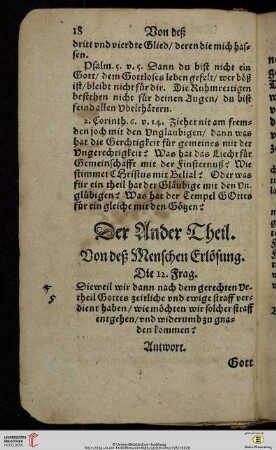 18 Von deß
dritt vnd vierdte Glied / deren die mich has-
sen.
Psalm. 5. v. 5. Dann du bist nicht ein
Gott / dem Gottloses leben gefelt / wer böß
ist / bleibt nicht für dir. Die Ruhmrettigen
bestehen nicht für deinen Augen / du bist
feind allen Vbelthätern.
2. Corinth. 6. v. 14. Ziehet nit am frems
den joch mit den Vnglaubigen / dann was
hat die Gerchtigkeit für gemeines mit der
Vngerechtigkeit? Was hat das Liecht für
Gemeinschaffe mit der Finsternuß? Wie
stimmet Christus mit Belial? Oder was
für ein theil hat der Gläubige mit den Vn-
glübigen? Was hat der Tempel Gottes
für ein gleiche mit den Götzen?
Der Ander Theil.
Von deß Menschen Erlösung.
Die 12. Frag.
Dieweil wir dann nach dem gerechten Vr-
5 theil Gottes zeitliche vnd ewige straff ver-
dient haben / wie möchten wir solcher straff
entgehen / vnd widerumb zu gna-
den kommen?
Antwort.
Gott